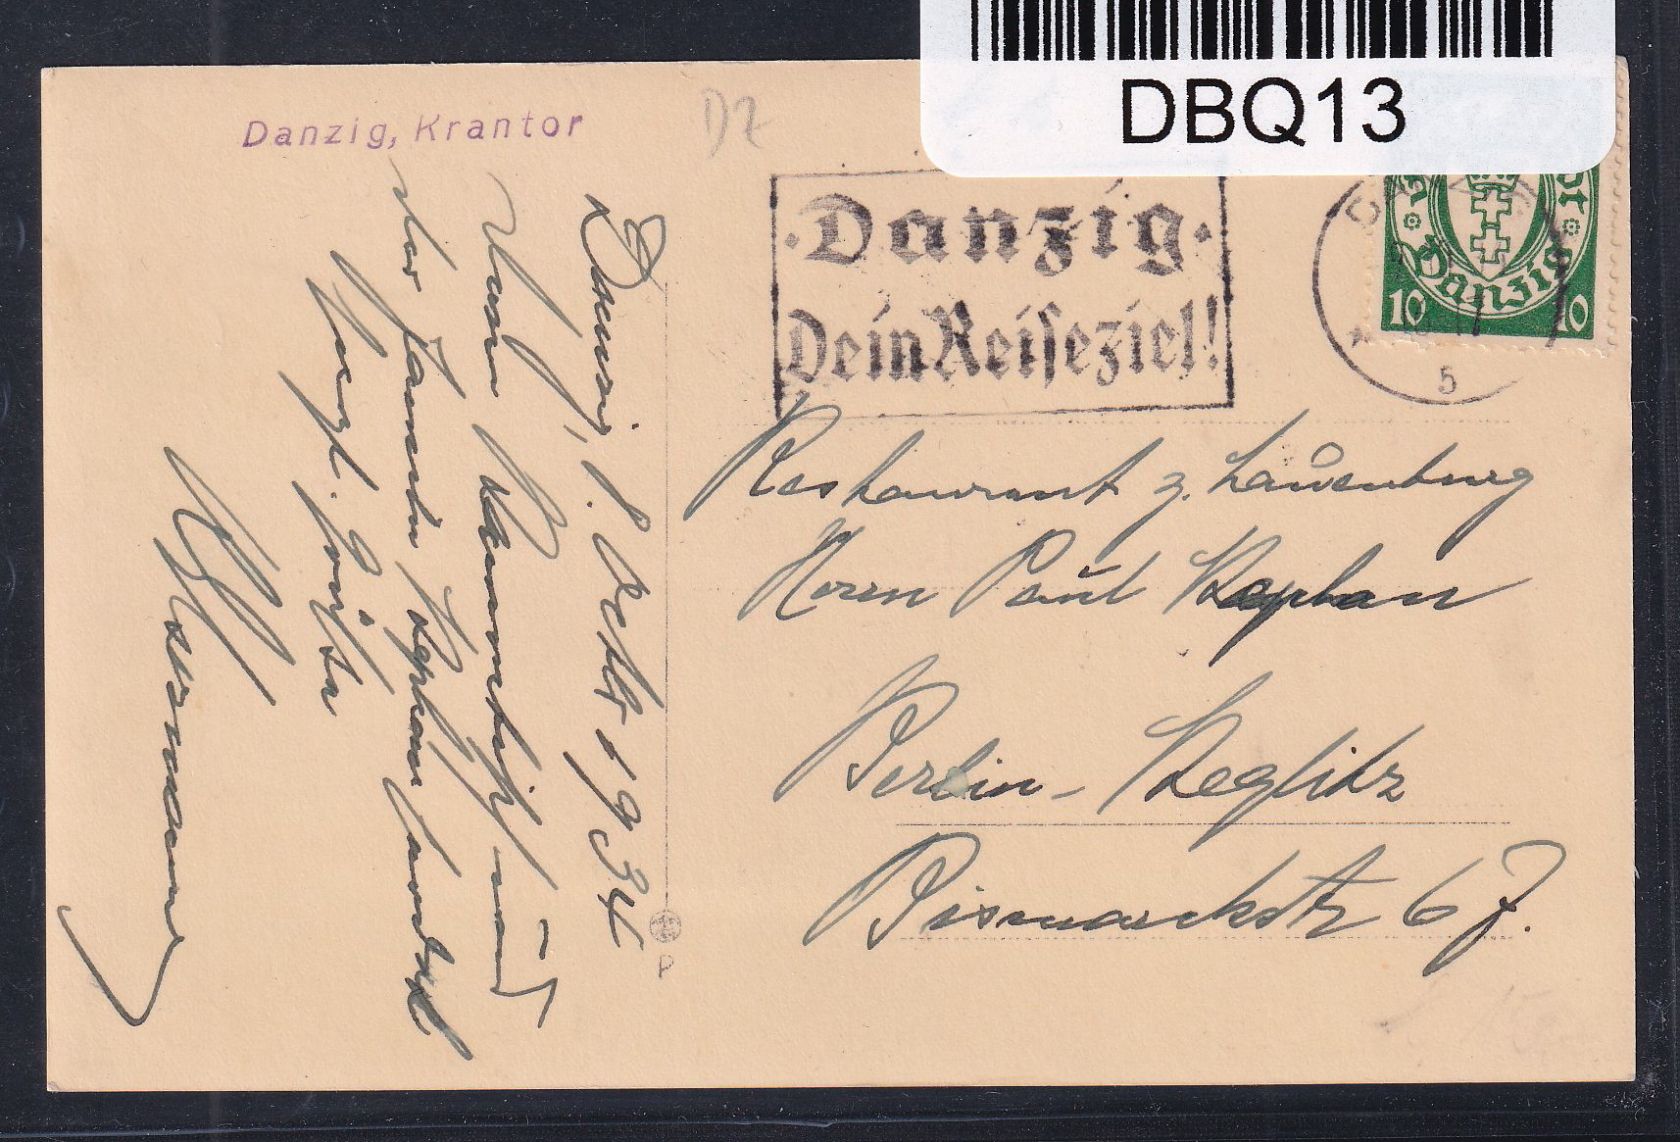 DBQ13
Danzig, Krantor
DZ
· Danzig ·
Dein Reiseziel!
Danzig
10 10
5
Danzig, 1. Oktb 1934
der Familie Kaplan
Herzl. Grüße
Restaurant z. Lauenburg
Herrn Paul Kaplan
Berlin-Steglitz
Bismarckstr 67.
P